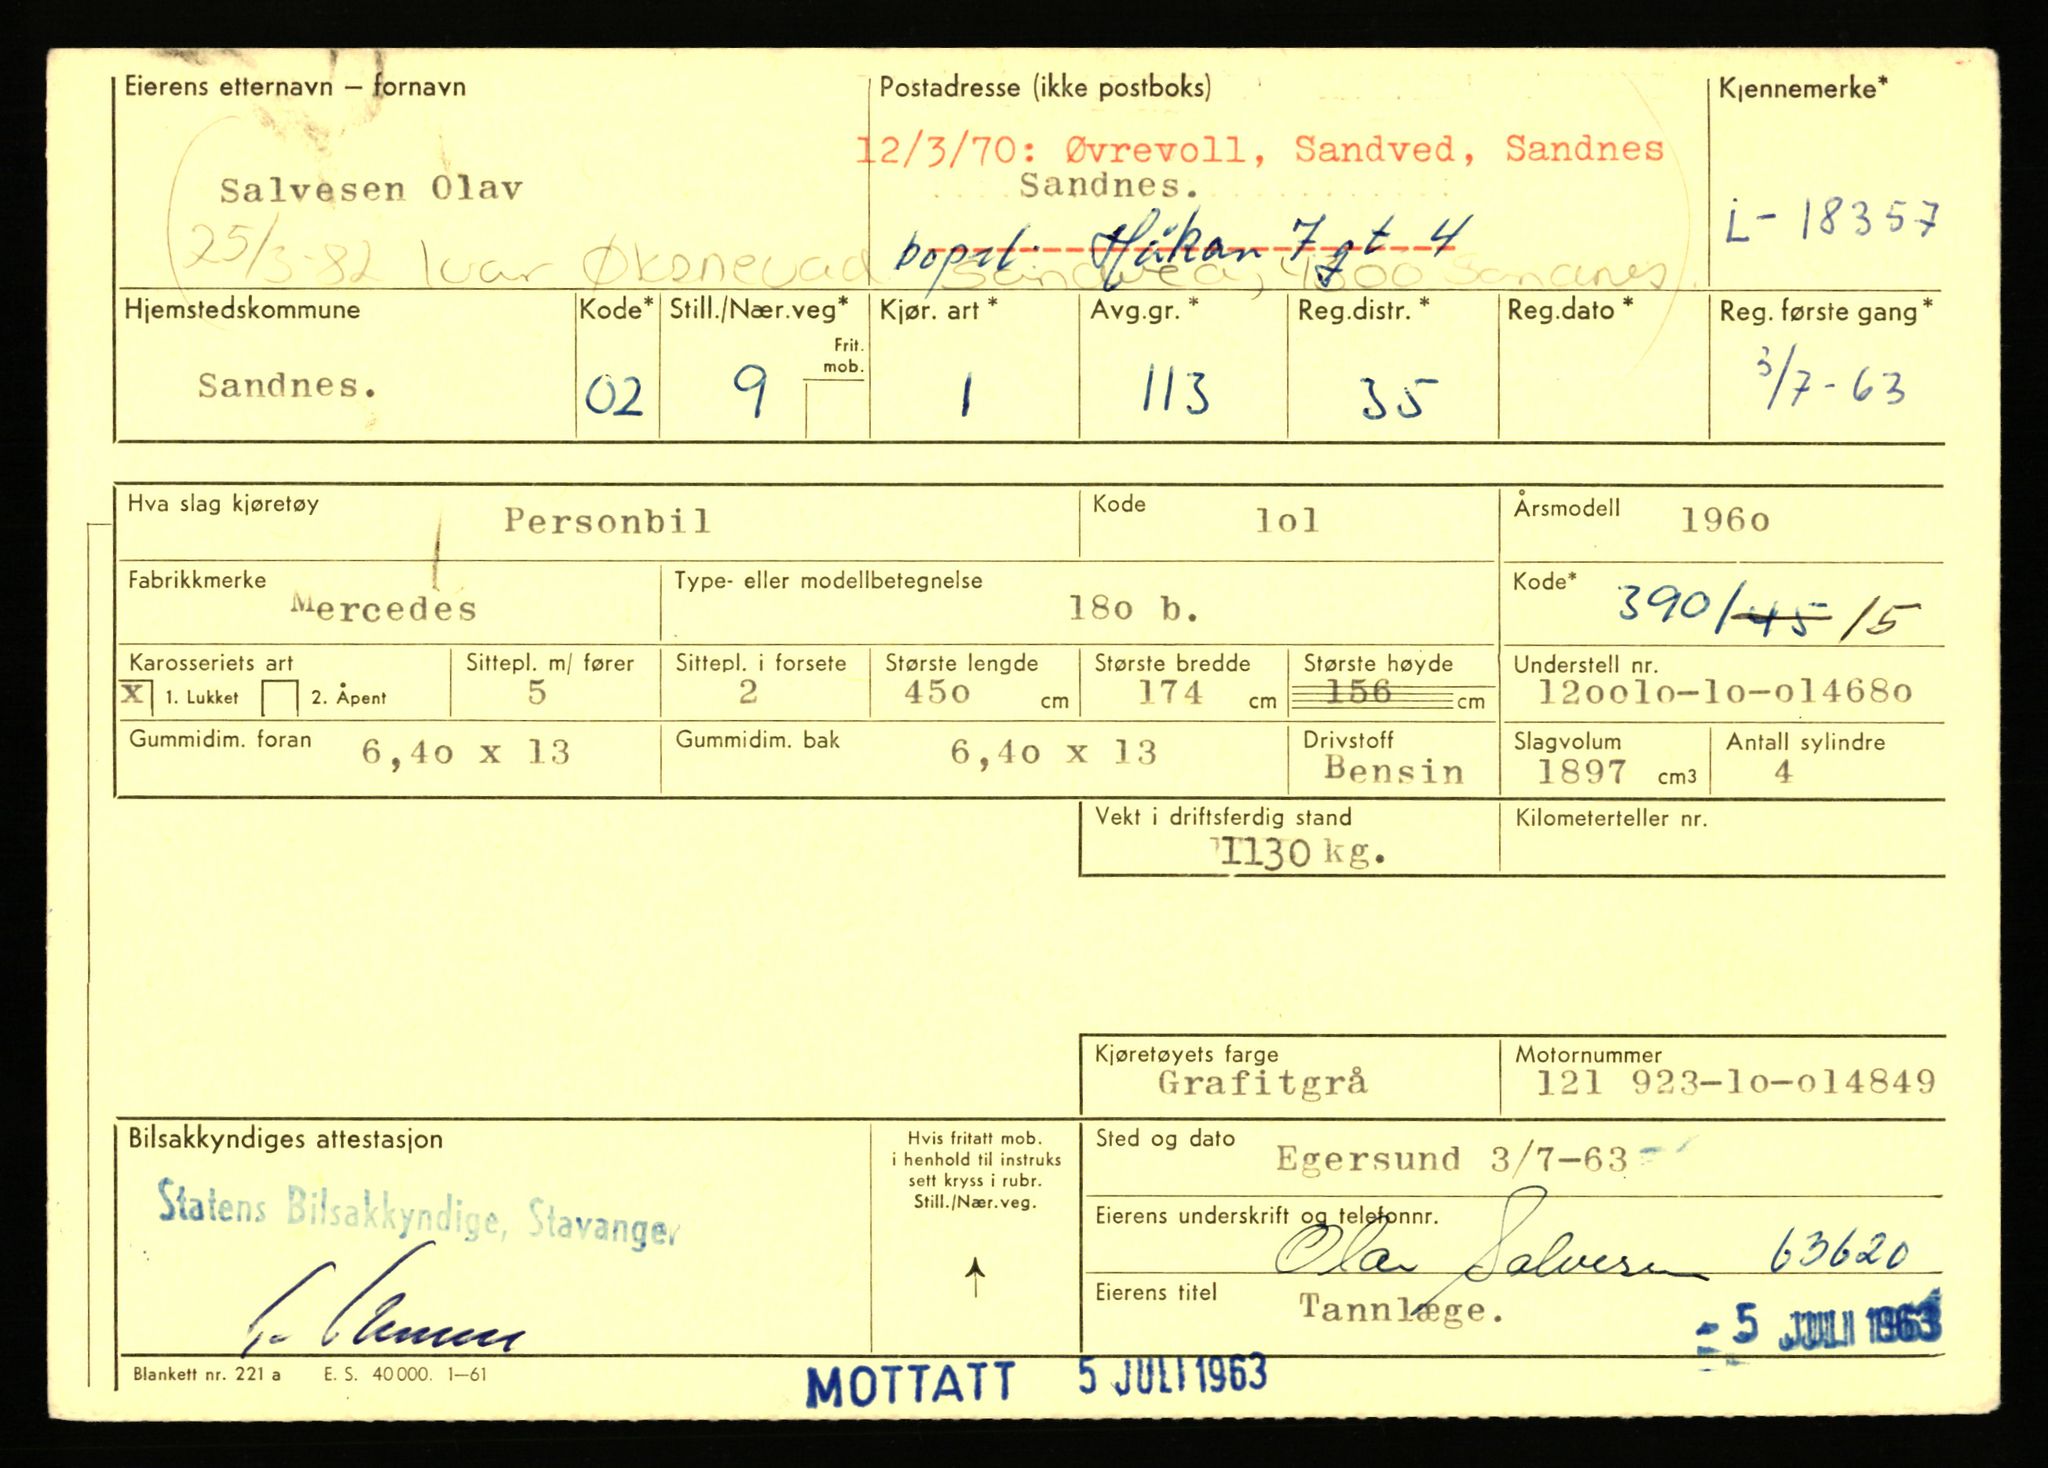 Eierens etternavn — fornavn
Postadresse (ikke postboks)
Kjennemerke*
12/3/70: Øvrevoll, Sandved, Sandnes
Salvesen Olav
Sandnes.
L- 18357
bopel: Håkon 7 gt 4
25/3-82 Ivar Øksnevad Sandved, 4300 Sandnes.
Hjemstedskommune
Kode*
Still./Nær.veg*
Kjør. art *
Avg.gr. *
Reg.distr. *
Reg.dato *
Reg. første gang *
Frit. mob.
Sandnes.
02
9
1
113
35
3/7-63
Hva slag kjøretøy
Personbil
Kode
lol
Årsmodell
196o
Fabrikkmerke
Mercedes
Type- eller modellbetegnelse
18o b.
Kode*
390/45/5
Karosseriets art
Sittepl. m/ fører
Sittepl. i forsete
Største lengde
Største bredde
Største høyde
Understell nr.
X 1. Lukket 2. Åpent
5
2
45o cm
174 cm
156 cm
12oolo-lo-ol468o
Gummidim. foran
6,4o x 13
Gummidim. bak
6,4o x 13
Drivstoff
Bensin
Slagvolum
1897 cm3
Antall sylindre
4
Vekt i driftsferdig stand
1130 kg.
Kilometerteller nr.
Kjøretøyets farge
Grafitgrå
Motornummer
121 923-lo-ol4849
Bilsakkyndiges attestasjon
Statens Bilsakkyndige, Stavanger
Hvis fritatt mob.
i henhold til instruks
sett kryss i rubr.
Still./Nær.veg.
Sted og dato
Egersund 3/7-63
Eierens underskrift og telefonnr.
Olav Salvesen 63620
Eierens titel
Tannlæge.
- 5 JULI 1963
Blankett nr. 221 a E. S. 40 000. 1—61
MOTTATT 5 JULI 1963